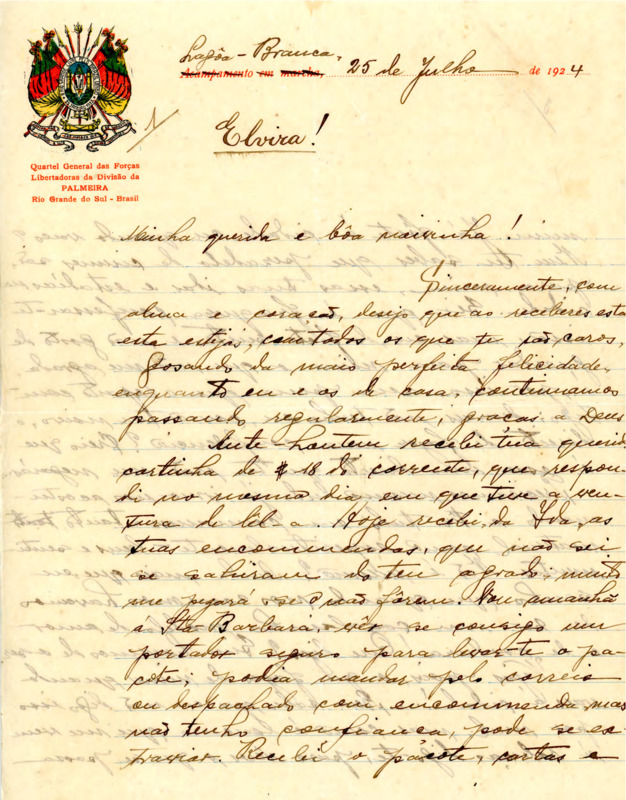 Lagôa-Branca,
Acampamento em marcha, 25 de Julho de 1924
1
Elvira!
Quartel General das Forças
Libertadoras da Divisão da
PALMEIRA
Rio Grande do Sul - Brasil
Minha querida e bôa noivinha!
Sinceramente, com
alma e coração, desejo que ao receberes esta
esta estejas, com todos os que te são caros,
gosando da mais perfeita felicidade,
enquanto eu e os de casa, continuamos
passando regularmente, graças a Deus
Ante-hontem recebi tua querida
cartinha de 18 do corrente, que respon-
di no mesmo dia em que tive a ven-
tura de lêl-a. Hoje recebi, da Yda, as
tuas encommendas, que não sei
se sahiram do teu agrado; muito
me pezará se não fôrem. Vou amanhã
á Sta Barbara, vêr se consigo um
portador seguro para levar-te o pa-
cóte; podia mandar pelo correio
ou despachado com encommenda, mas
não tenho confiança, pode se ex-
traviar. Recebi o pacote, cartas e